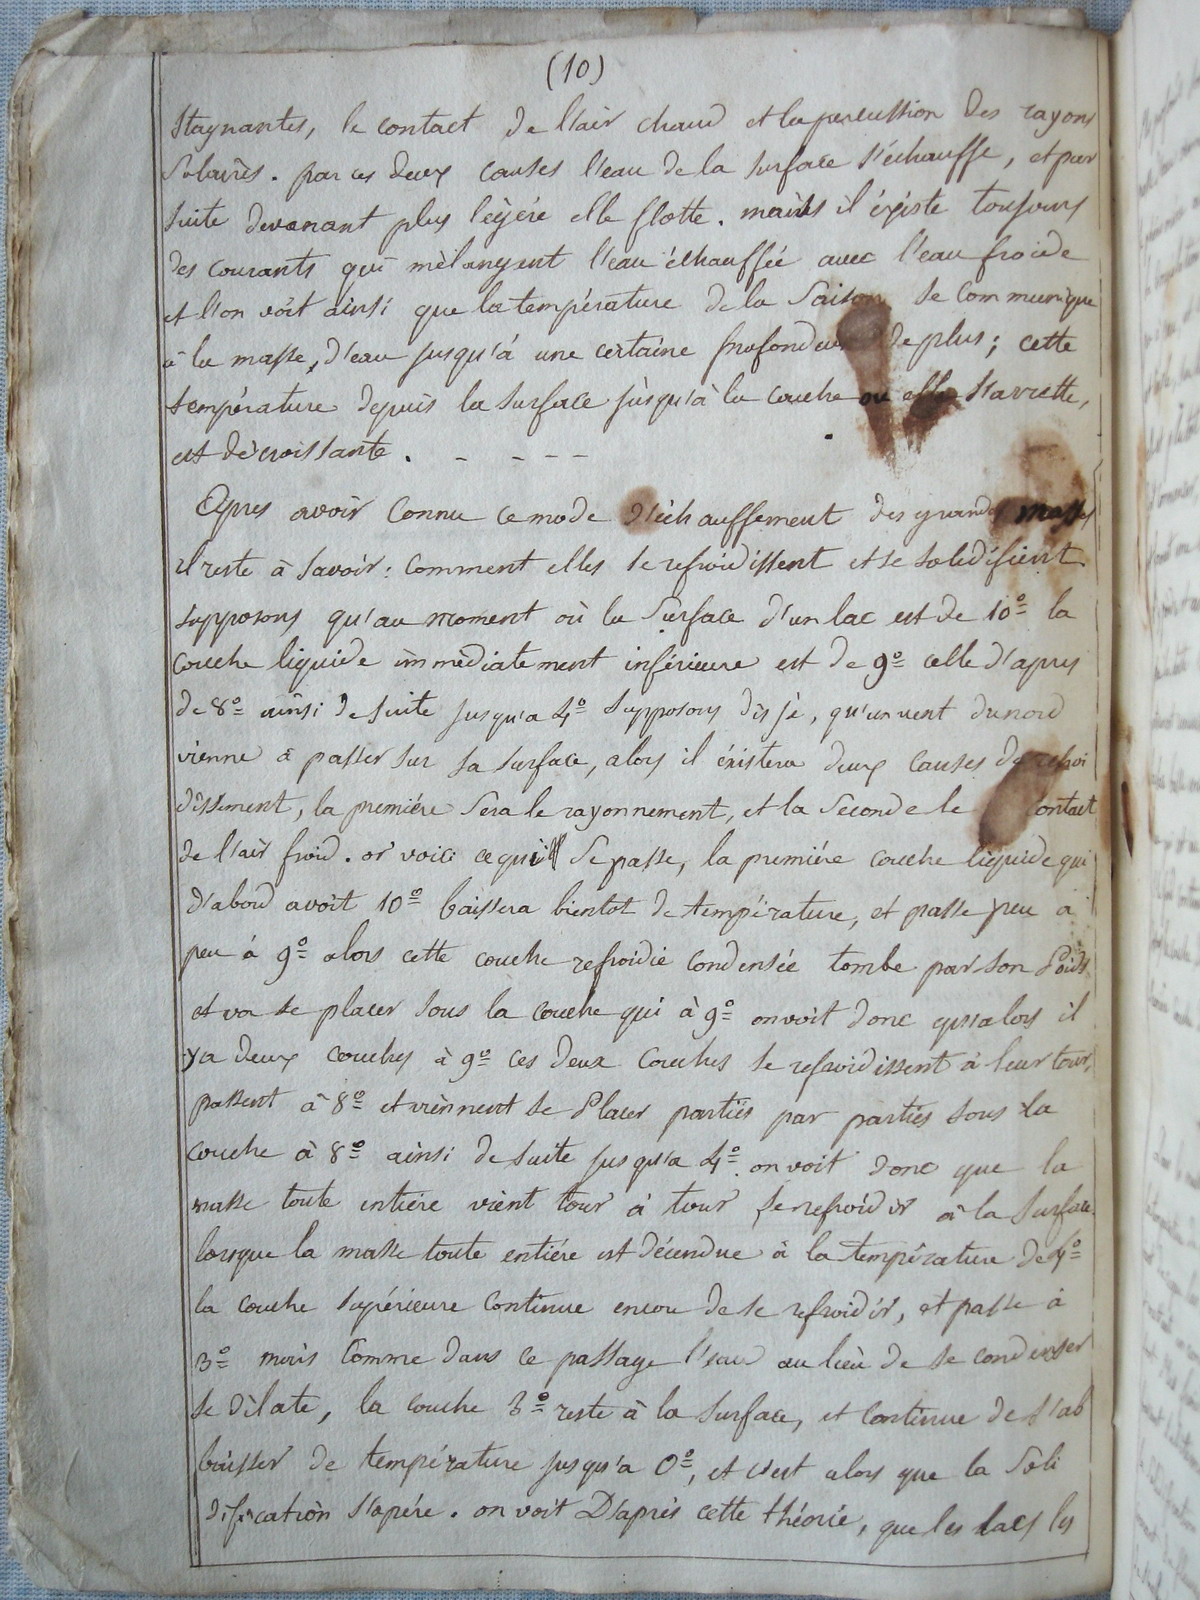 (10)
Stagnantes, le contact de l'air chaud et la percussion des rayons
Solaires. par ces deux causes l'eau de la surface s'échauffe, et par
suite devenant plus légére elle flotte. mais il éxiste toujours
des courants qui mèlangent l'eau échauffée avec l'eau froide
et l'on voit ainsi que la température de la Saison se communique
à la masse, d'eau jusqu'à une certaine profondeur de plus; cette
température depuis la surface jusqu'à la couche ou elle s'arrette,
est décroissante. - - - -
Apres avoir Connu ce mode d'échauffement des grandes masses
il reste à savoir: Comment elles se refroidissent et se solidifient
supposons qu'au moment où la Surface d'un lac est de 10° la
couche liquide immédiatement inférieure est de 9° celle d'apres
de 8° ainsi de suite jusqu'a 4° supposons dis je, qu'un vent du nord
vienne à passer sur sa surface, alors il éxistera deux causes de refroi
dissement, la premiére sera le rayonnement, et la seconde le contact
de l'air froid. or voici ce qui se passe, la premiére couche liquide qui
d'abord avoit 10° baissera bientot de température, et passe peu a
peu à 9° alors cette couche refroidie condensée tombe par son Poids
et va se placer sous la couche qui à 9° on voit donc qu'alors il
y a deux couches à 9° ces deux Couches se refroidissent à leur tour,
passent à 8° et viennent se Placer parties par parties sous la
couche à 8° ainsi de suite jusqu'a 4° on voit donc que la
masse toute entiére vient tour à tour se refroidir à la surface.
lorsque la masse toute entiére est décendue à la température de 4°
la couche supérieure continue encore de se refroidir, et passe à
3° mais Comme dans ce passage l'eau au lieu de se condenser
se dilate, la couche 3° reste à la surface, et continue de s'ab
baisser de température jusqu'a 0°, et c'est alors que la Soli
dification s'opére. on voit D'aprés cette théorie, que les lacs les